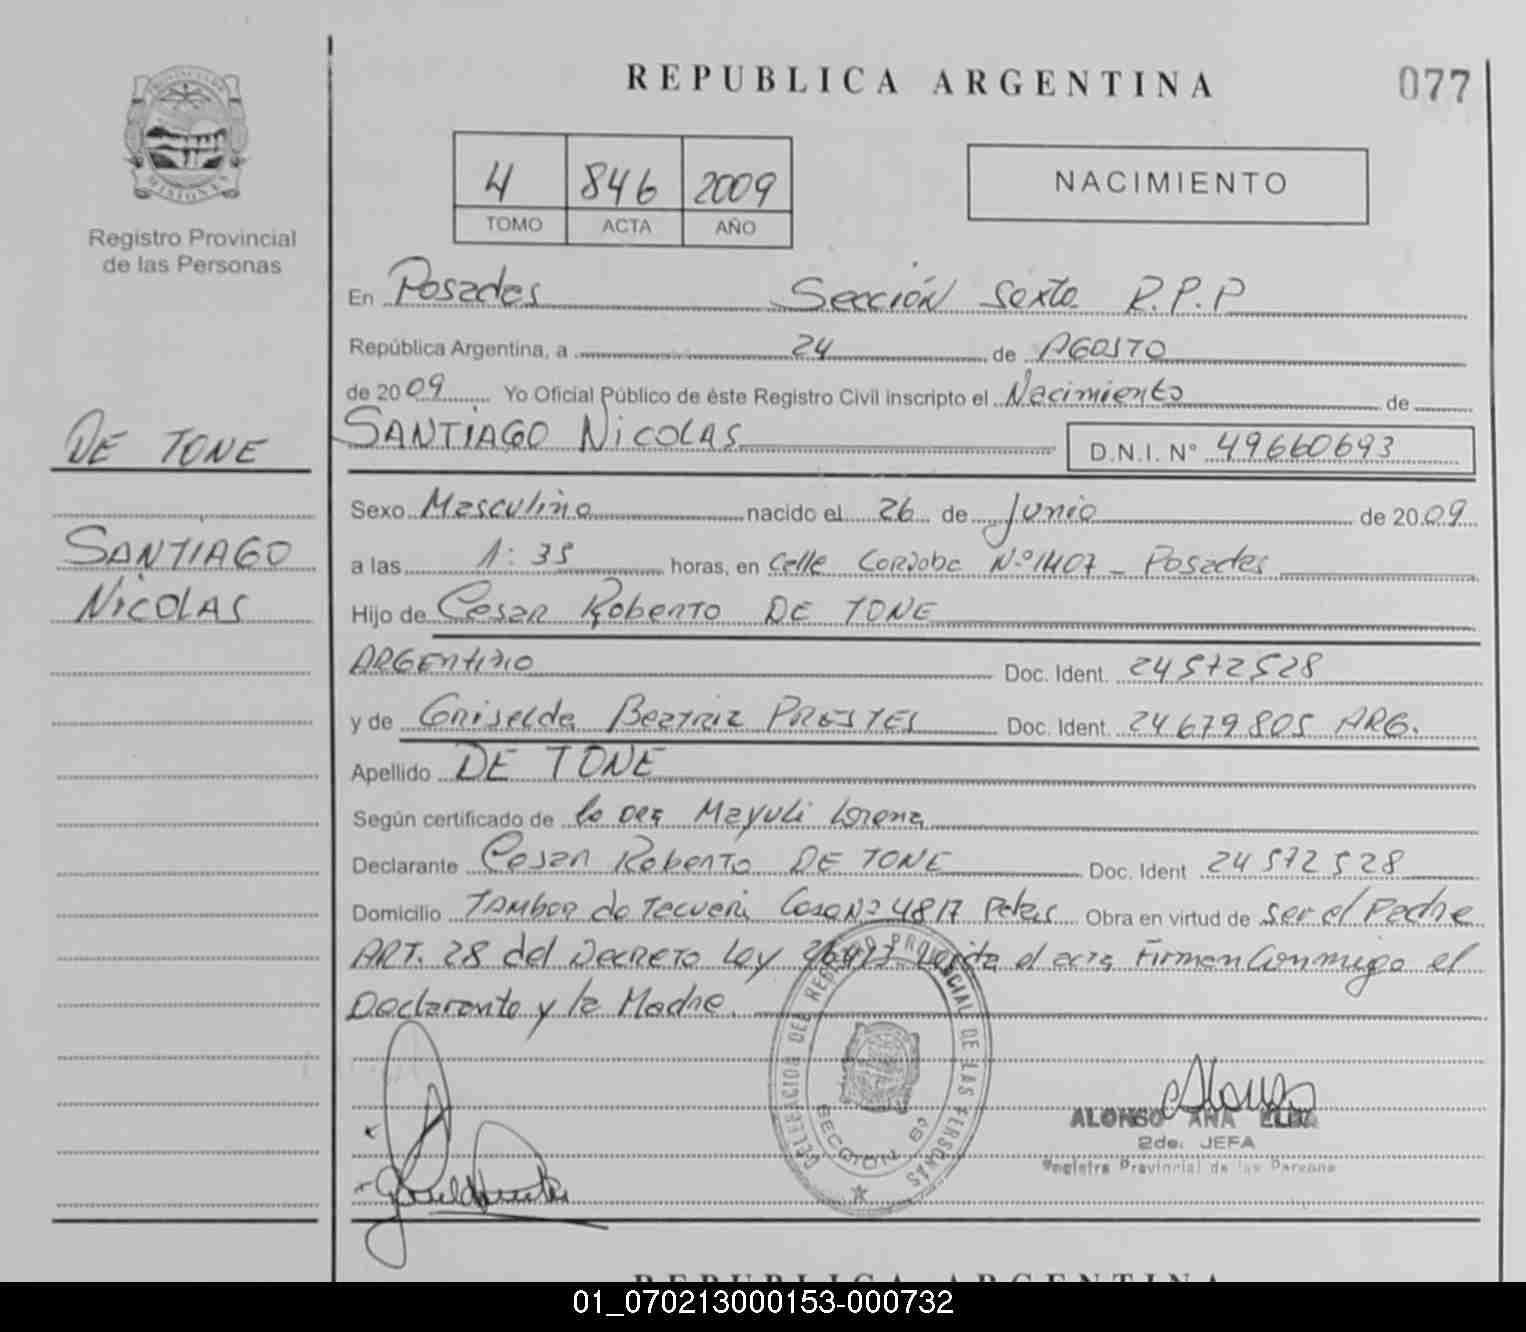 REPUBLICA ARGENTINA
077
PROVINCIA DE
MISIONES
Registro Provincial
de las Personas
4 846 2009
TOMO ACTA AÑO
NACIMIENTO
En Posadas Sección Sexta R.P.P
República Argentina, a 24 de AGOSTO
de 2009 Yo Oficial Público de éste Registro Civil inscripto el Nacimiento de
SANTIAGO NicoLAS D.N.I. N° 49660693
DE TONE
SANTIAGO
NicoLAS
Sexo Masculino nacido el 26 de Junio de 2009
a las 1:35 horas, en Calle Cordoba N°1407 - Posadas
Hijo de Cesar Roberto DE TONE
ARGENtino Doc. Ident. 24572528
y de Griselda Beatriz PRESTES Doc. Ident. 24679805 ARG.
Apellido DE TONE
Según certificado de la Dra Mayuli Lorena
Declarante Cesar Roberto DE TONE Doc. Ident 24572528
Domicilio TAMBOR de Tacuari Casa N° 4817 Pdas Obra en virtud de ser el Padre
ART. 28 del Decreto Ley Leida el acta Firman Conmigo el
Declarante y la Madre.
DELEGACION DEL REGISTRO PROVINCIAL DE LAS PERSONAS
SECCION 6ª
ALONSO ANA
2da. JEFA
Registro Provincial de las Persona
REPUBLICA ARGENTINA
01_070213000153-000732